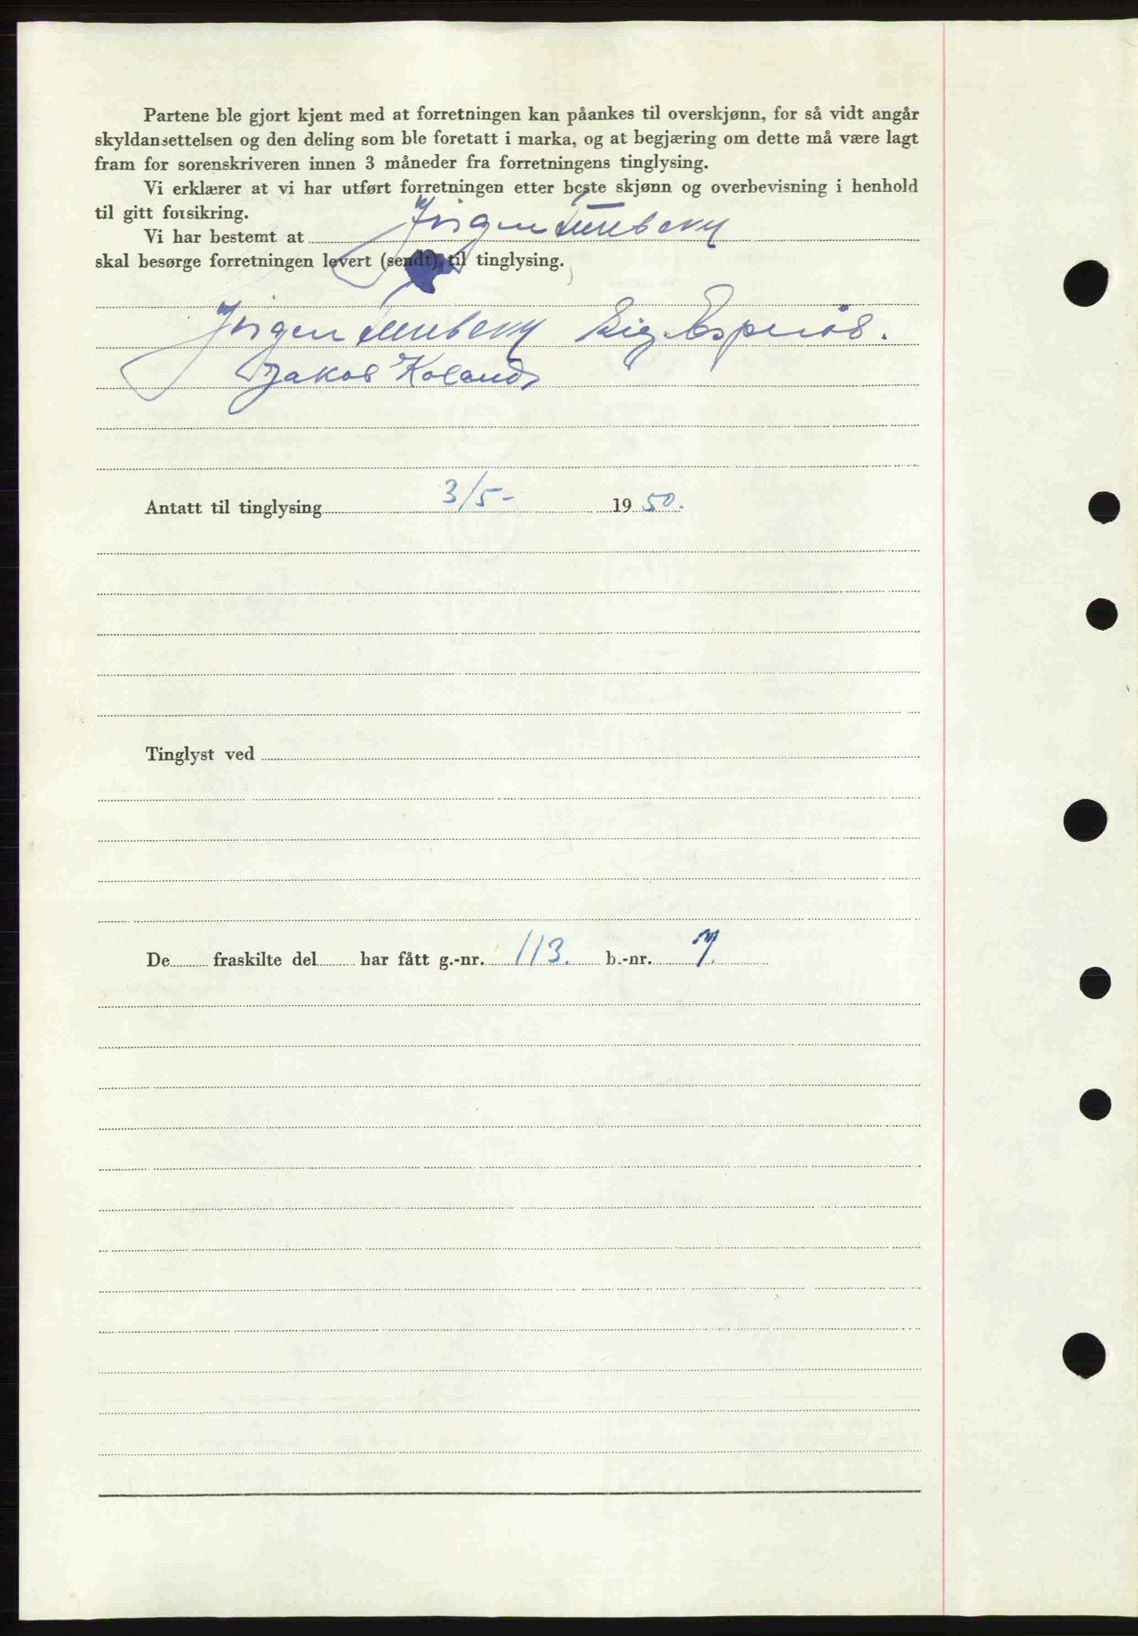 Partene ble gjort kjent med at forretningen kan påankes til overskjønn, for så vidt angår
skyldansettelsen og den deling som ble foretatt i marka, og at begjæring om dette må være lagt
fram for sorenskriveren innen 3 måneder fra forretningens tinglysing.
Vi erklærer at vi har utført forretningen etter beste skjønn og overbevisning i henhold
til gitt forsikring.
Vi har bestemt at Jörgen
skal besørge forretningen levert (sendt), til tinglysing.
Jörgen Sig.
Jakob
Antatt til tinglysing 3/5- 1950.
Tinglyst ved
De fraskilte del har fått g.-nr. 113. b.-nr. 7.